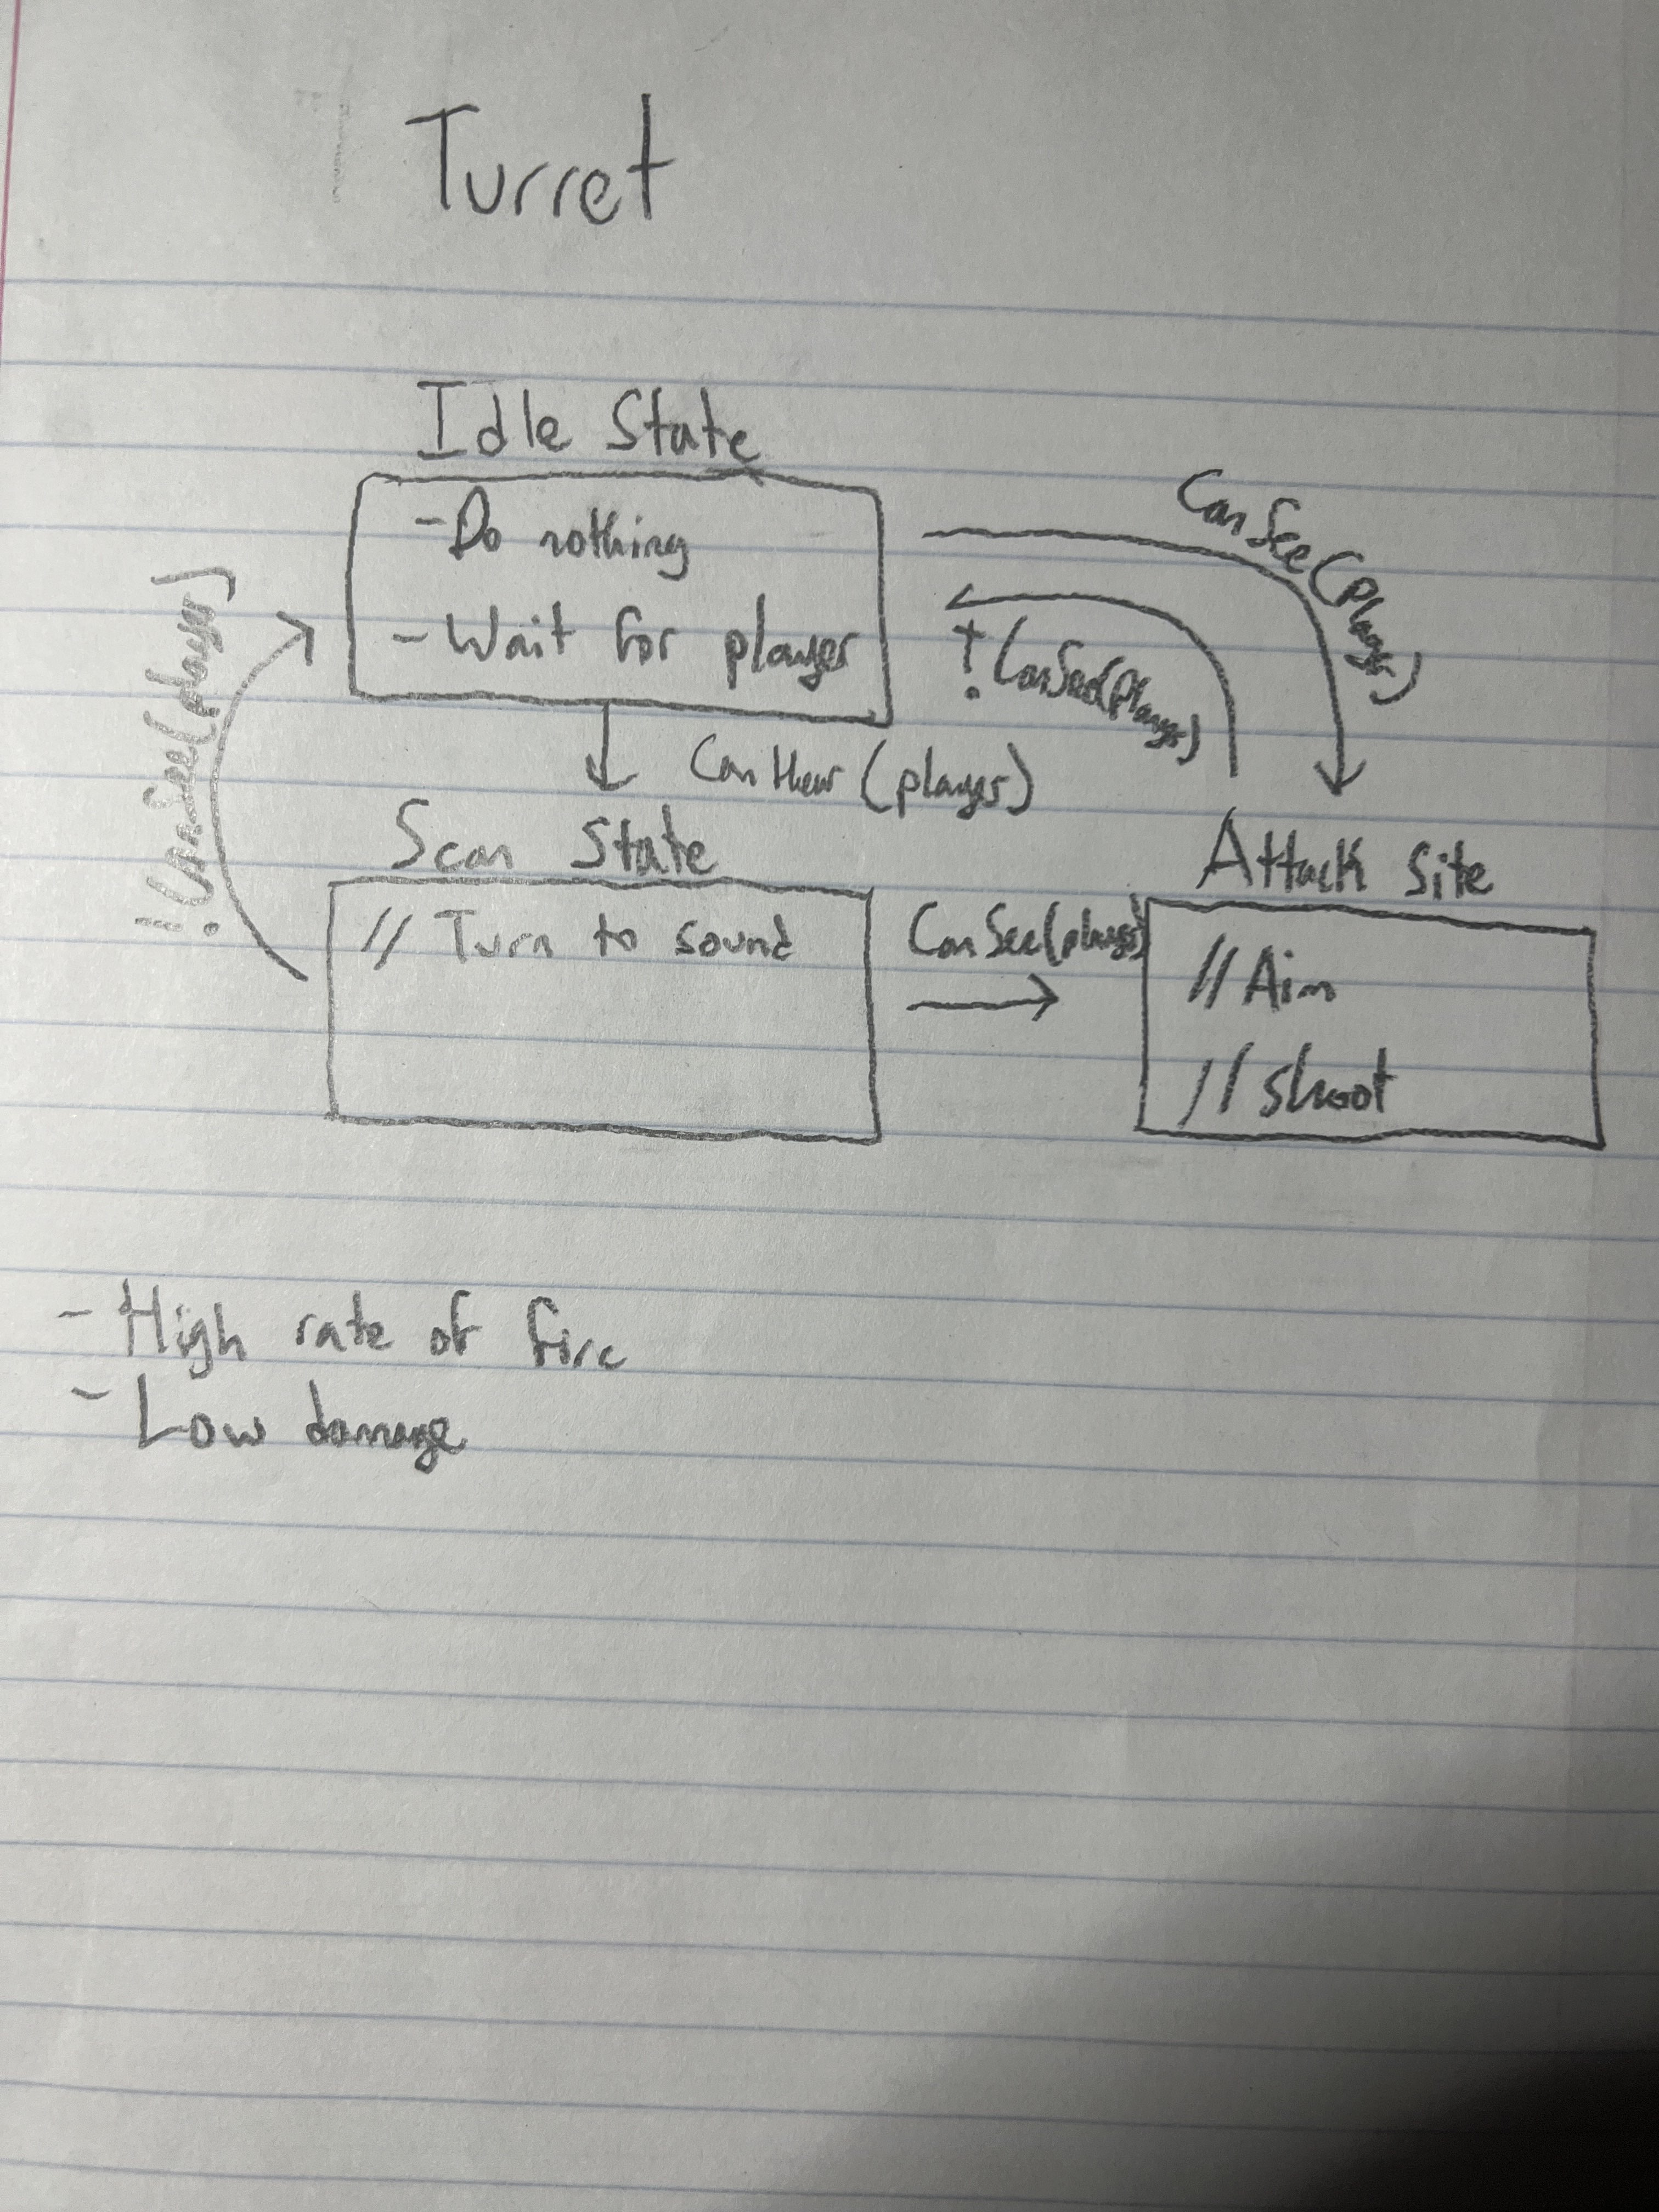 Turret
Idle State
- Do nothing
- Wait for player
CanSee(player)
!CanSee(player)
!CanSee(player)
CanHear (player)
Scan State
// Turn to sound
CanSee(player)
Attack Site
// Aim
// Shoot
- High rate of fire
- Low damage